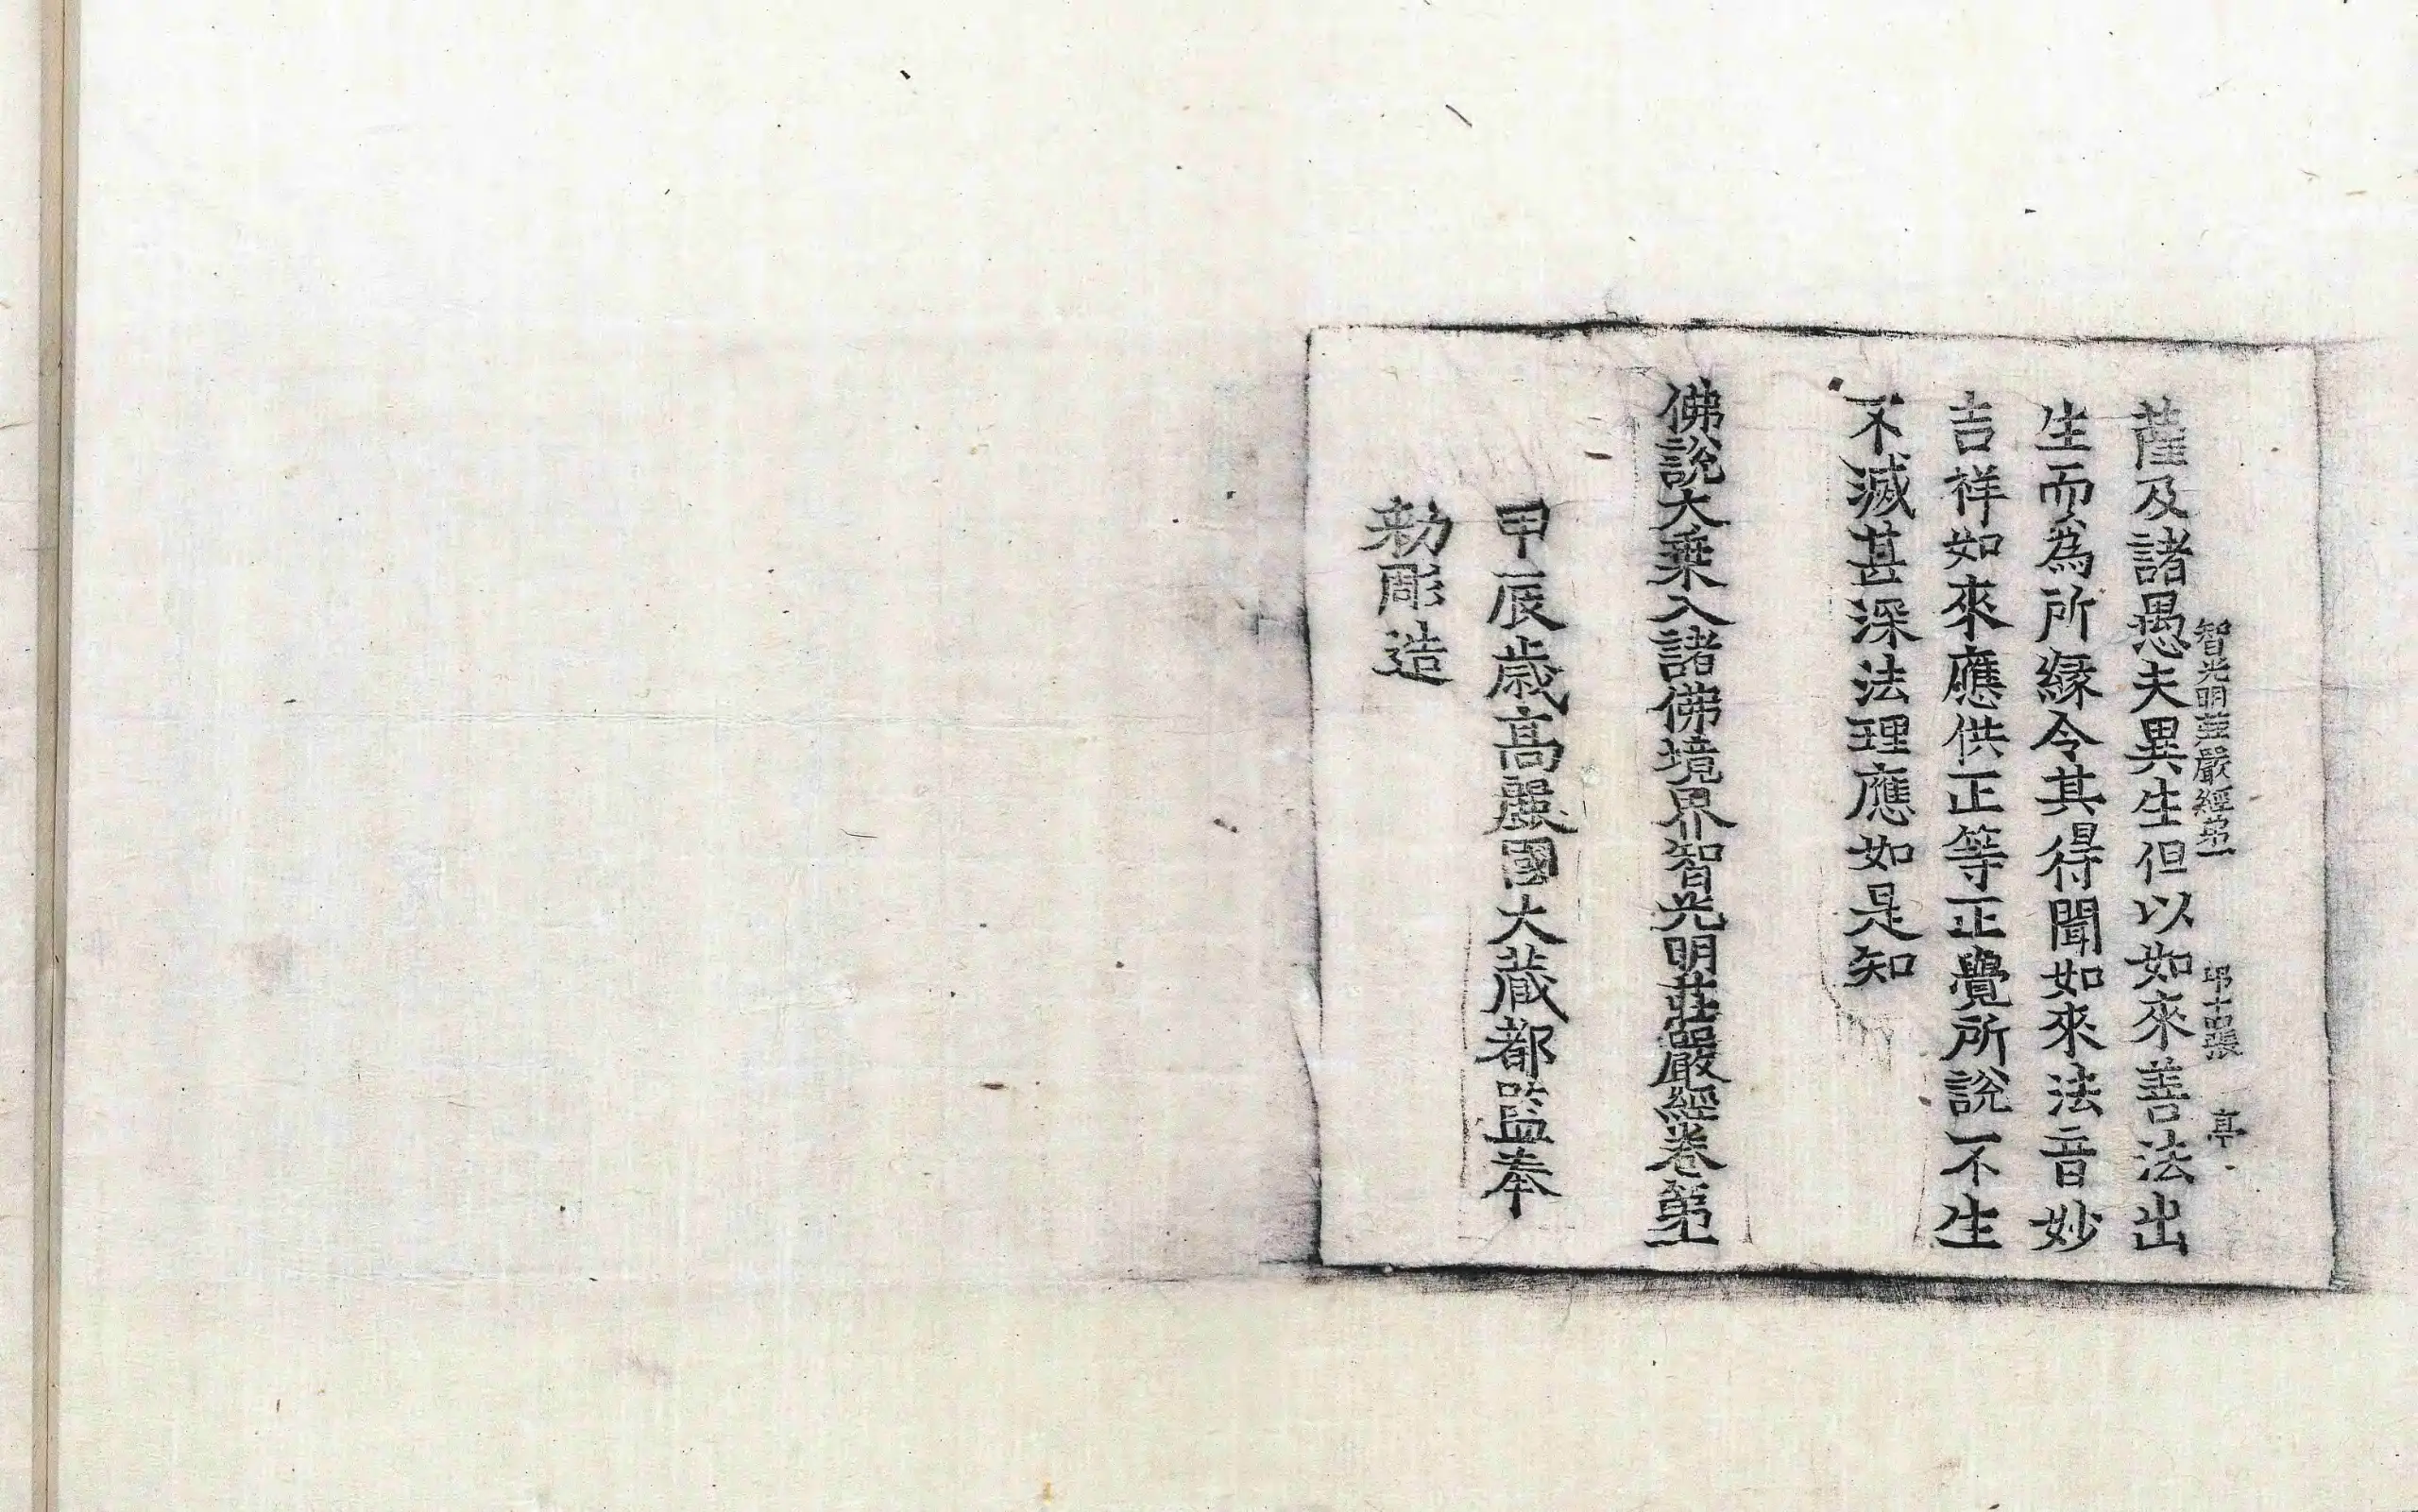 智光明莊嚴經第一 第十四張 亭
薩及諸愚夫異生但以如來善法出
生而為所緣令其得聞如來法音妙
吉祥如來應供正等正覺所說不生
不滅甚深法理應如是知
佛說大乘入諸佛境界智光明莊嚴經卷第一
甲辰歲高麗國大藏都監奉
勑彫造